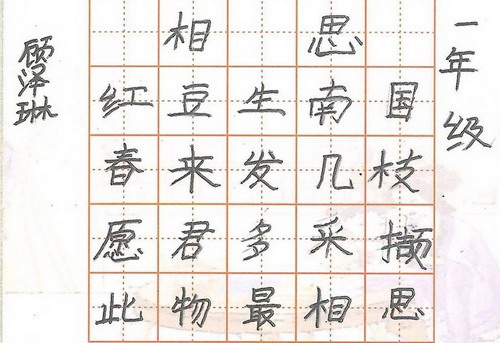 相思
红豆生南国
春来发几枝
愿君多采撷
此物最相思
一年级
顾泽琳